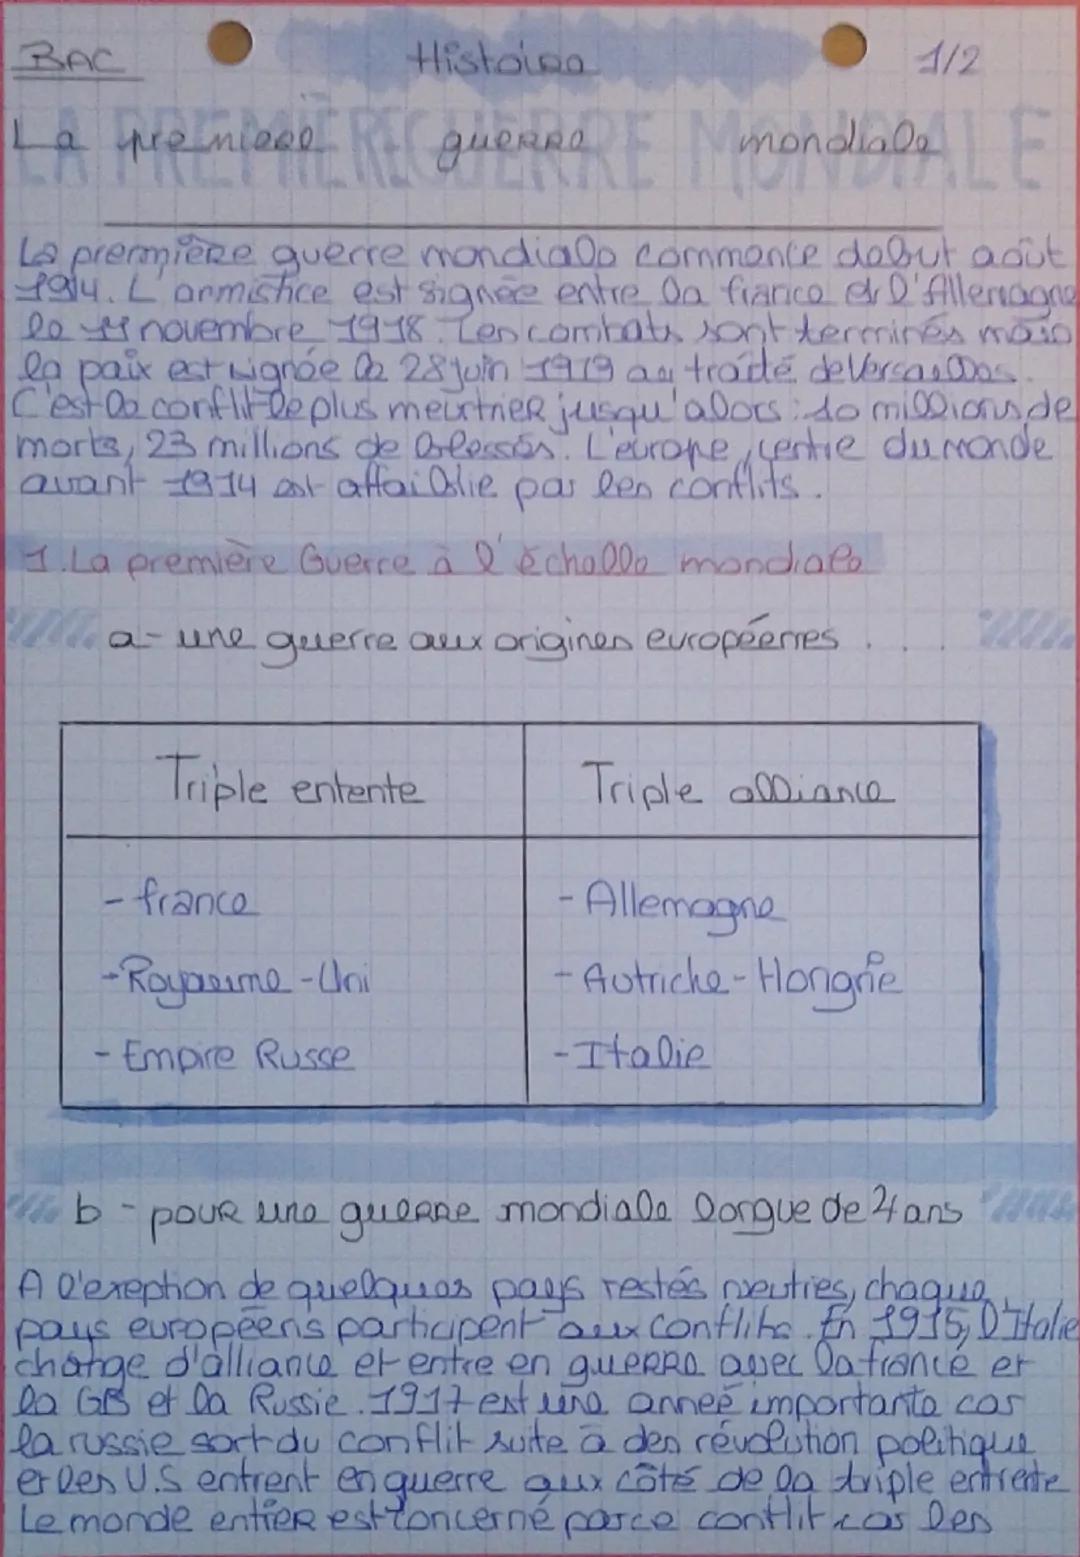 BAC
Histoire
1/2
LA PREMIÈRE GUERRE MONDIALE
La premiere guerre mondiale
La première guerre mondiale commence debut août
1914. L'armistice est signée entre la france et l'Allemagne
le 11 novembre 1918. Les combats sont terminés mais
la paix est signée le 28 juin 1919 au traité de Versailles.
C'est le conflit le plus meurtrier jusqu'alors : 10 millions de
morts, 23 millions de blessés. L'europe, centre du monde
avant 1914 est affaiblie par les conflits.
1. La première Guerre à l'échelle mondiale
a - une guerre aux origines européennes ...
Triple entente
Triple alliance
- france
- Allemagne
- Royaume-Uni
- Autriche-Hongrie
- Empire Russe
- Italie
b - pour une guerre mondiale longue de 4 ans
A l'exeption de quelques pays restés neutres, chaque
pays européens participent aux conflits. En 1915, l'Italie
change d'alliance et entre en guerre avec la france et
la GB et la Russie. 1917 est une année importante car
la russie sort du conflit suite à des révolution politique
et les U.S entrent en guerre aux côté de la triple entente
Le monde entier est concerné par ce conflit car les